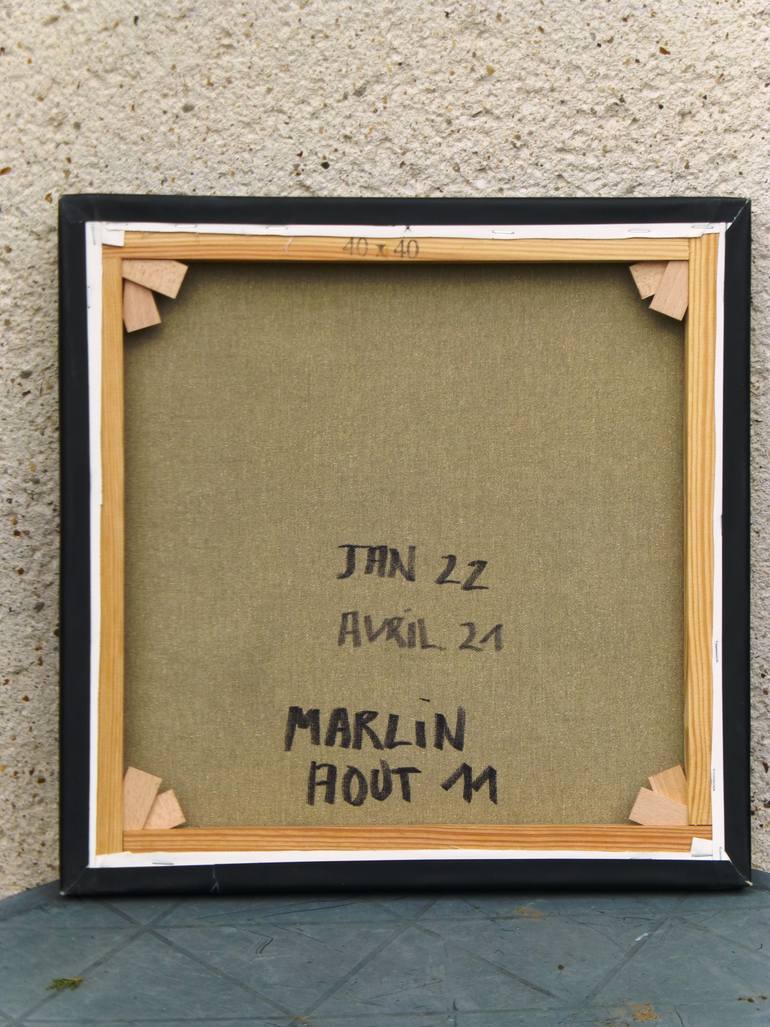 40 x 40
JAN 22
AVRIL 21
MARLIN
AOUT 11